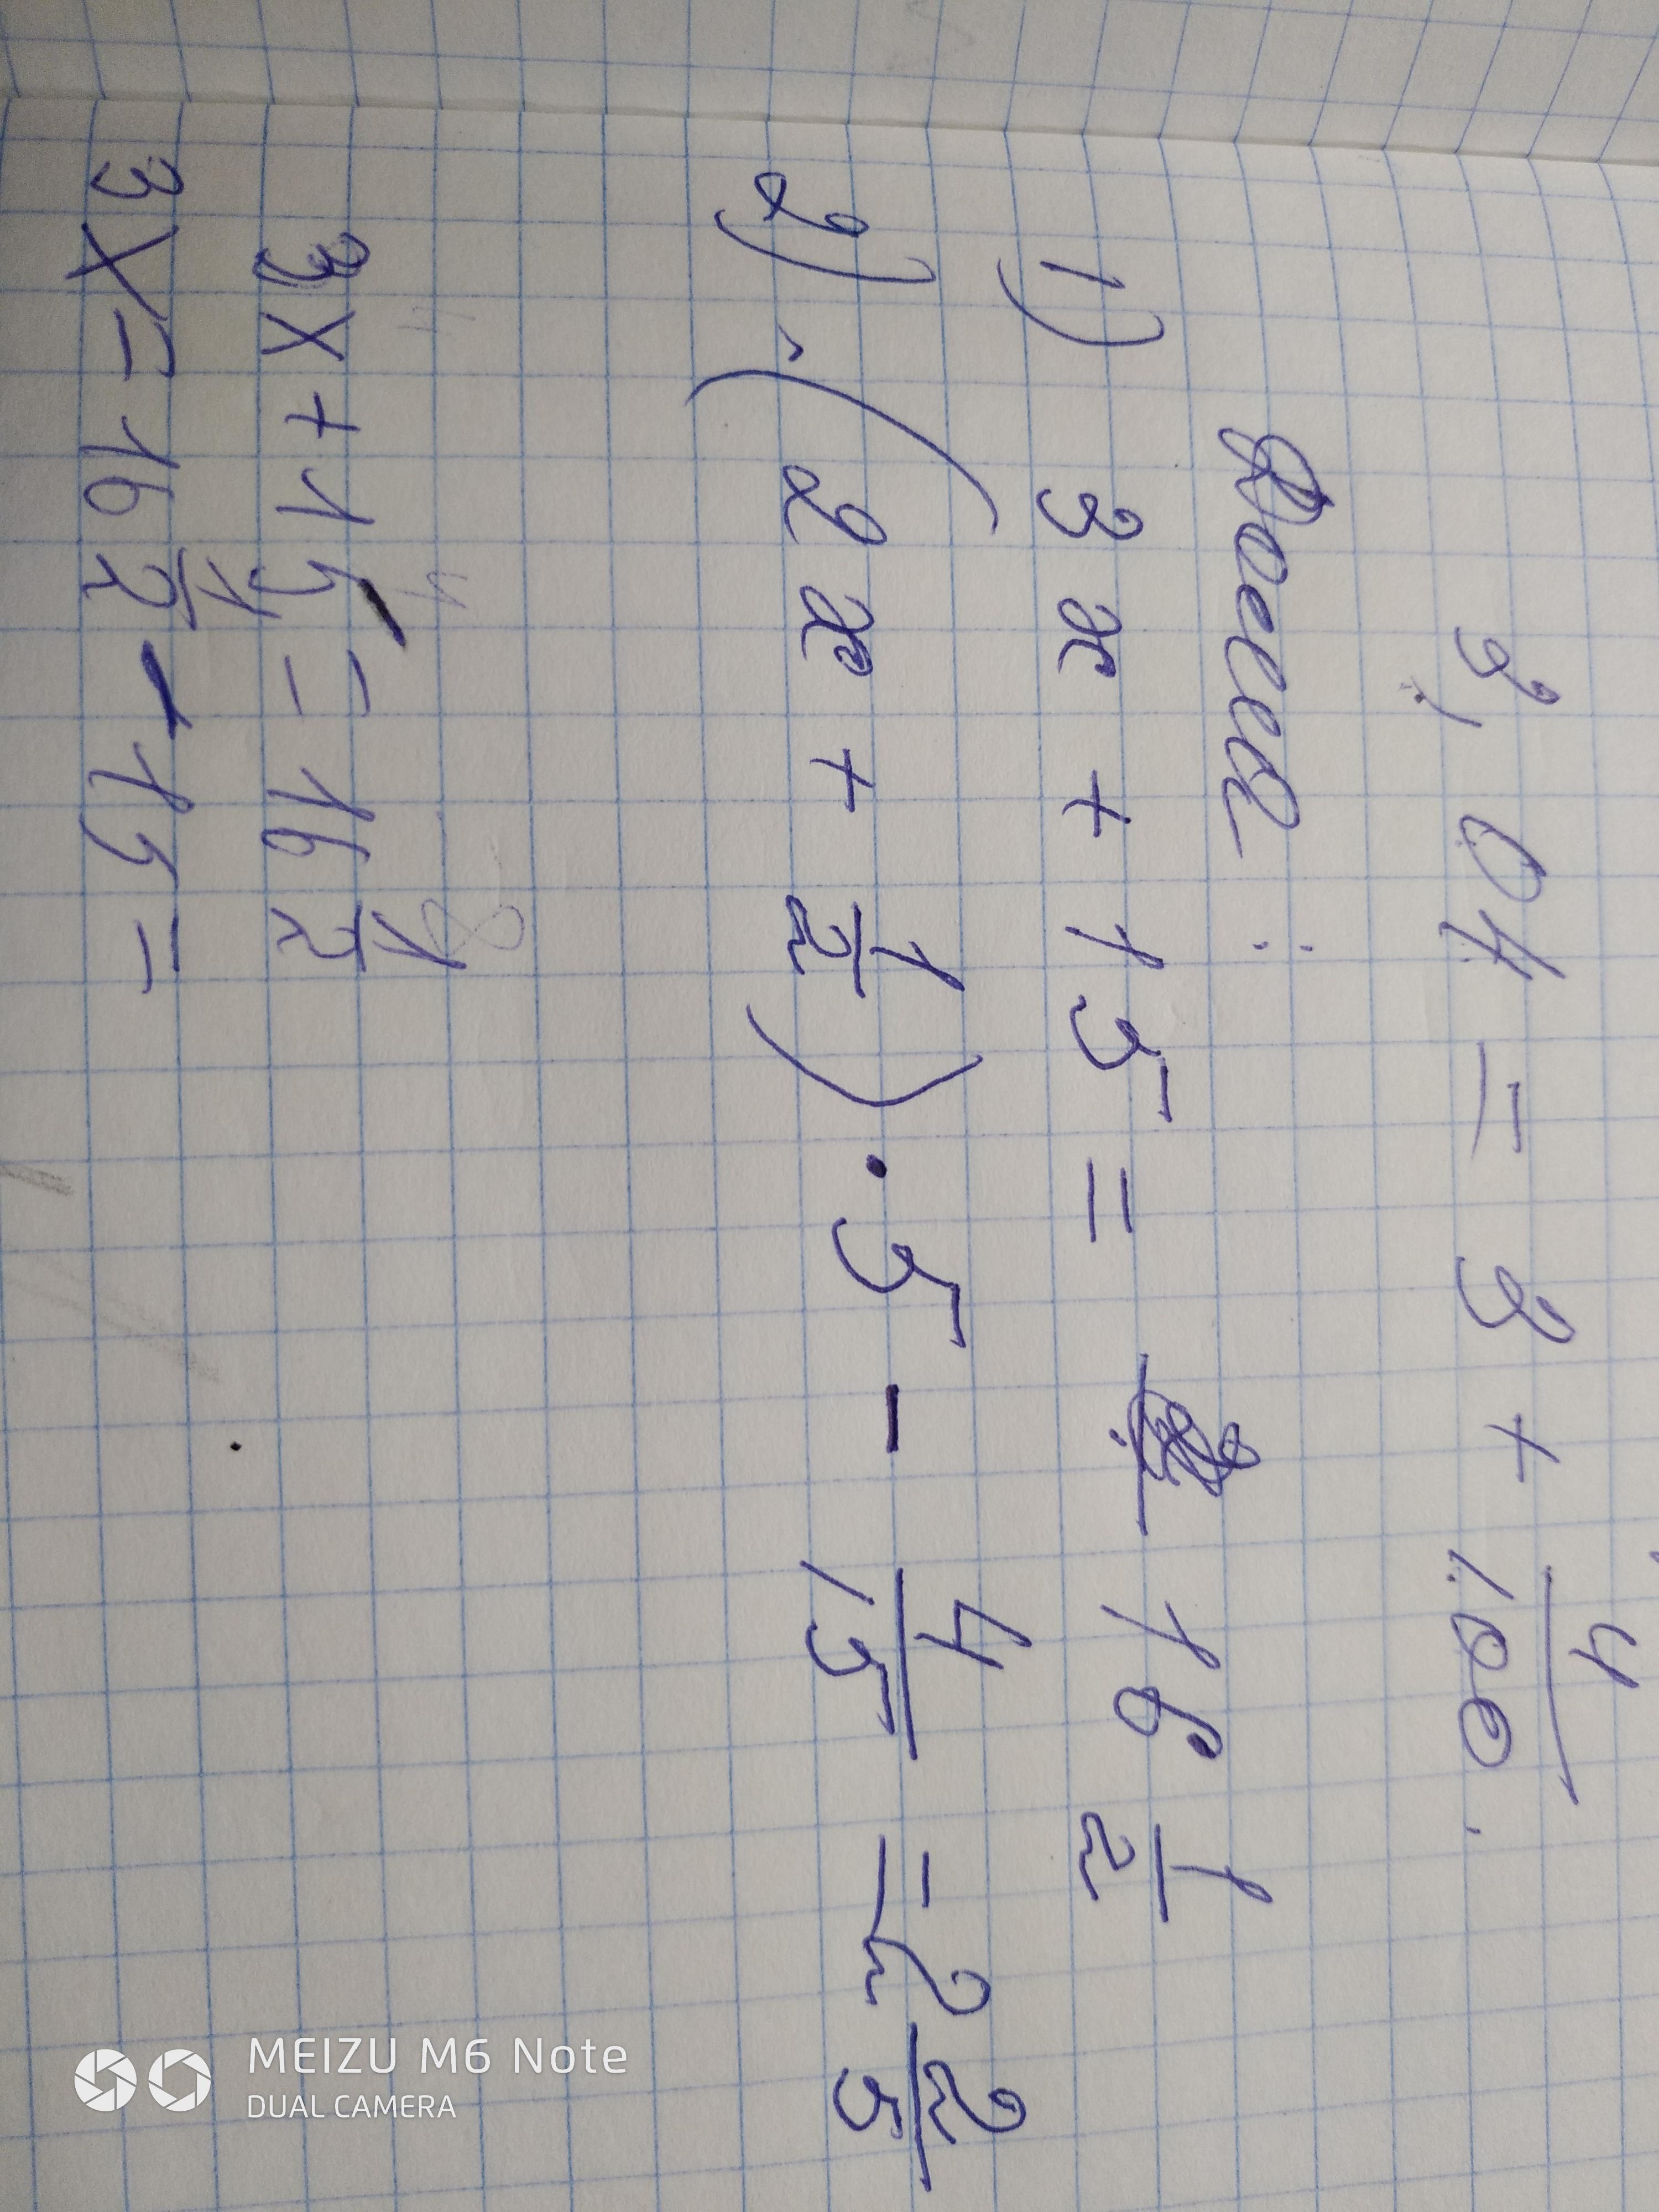 3,04 = 3 + 4/100.
Дома:
1) 3x + 15 = 16 1/2
2) (2x + 1/2) · 5 - 4/15 = 2 2/5
3x + 15 = 16 1/2
3x = 16 1/2 - 15 =
MEIZU M6 Note
DUAL CAMERA